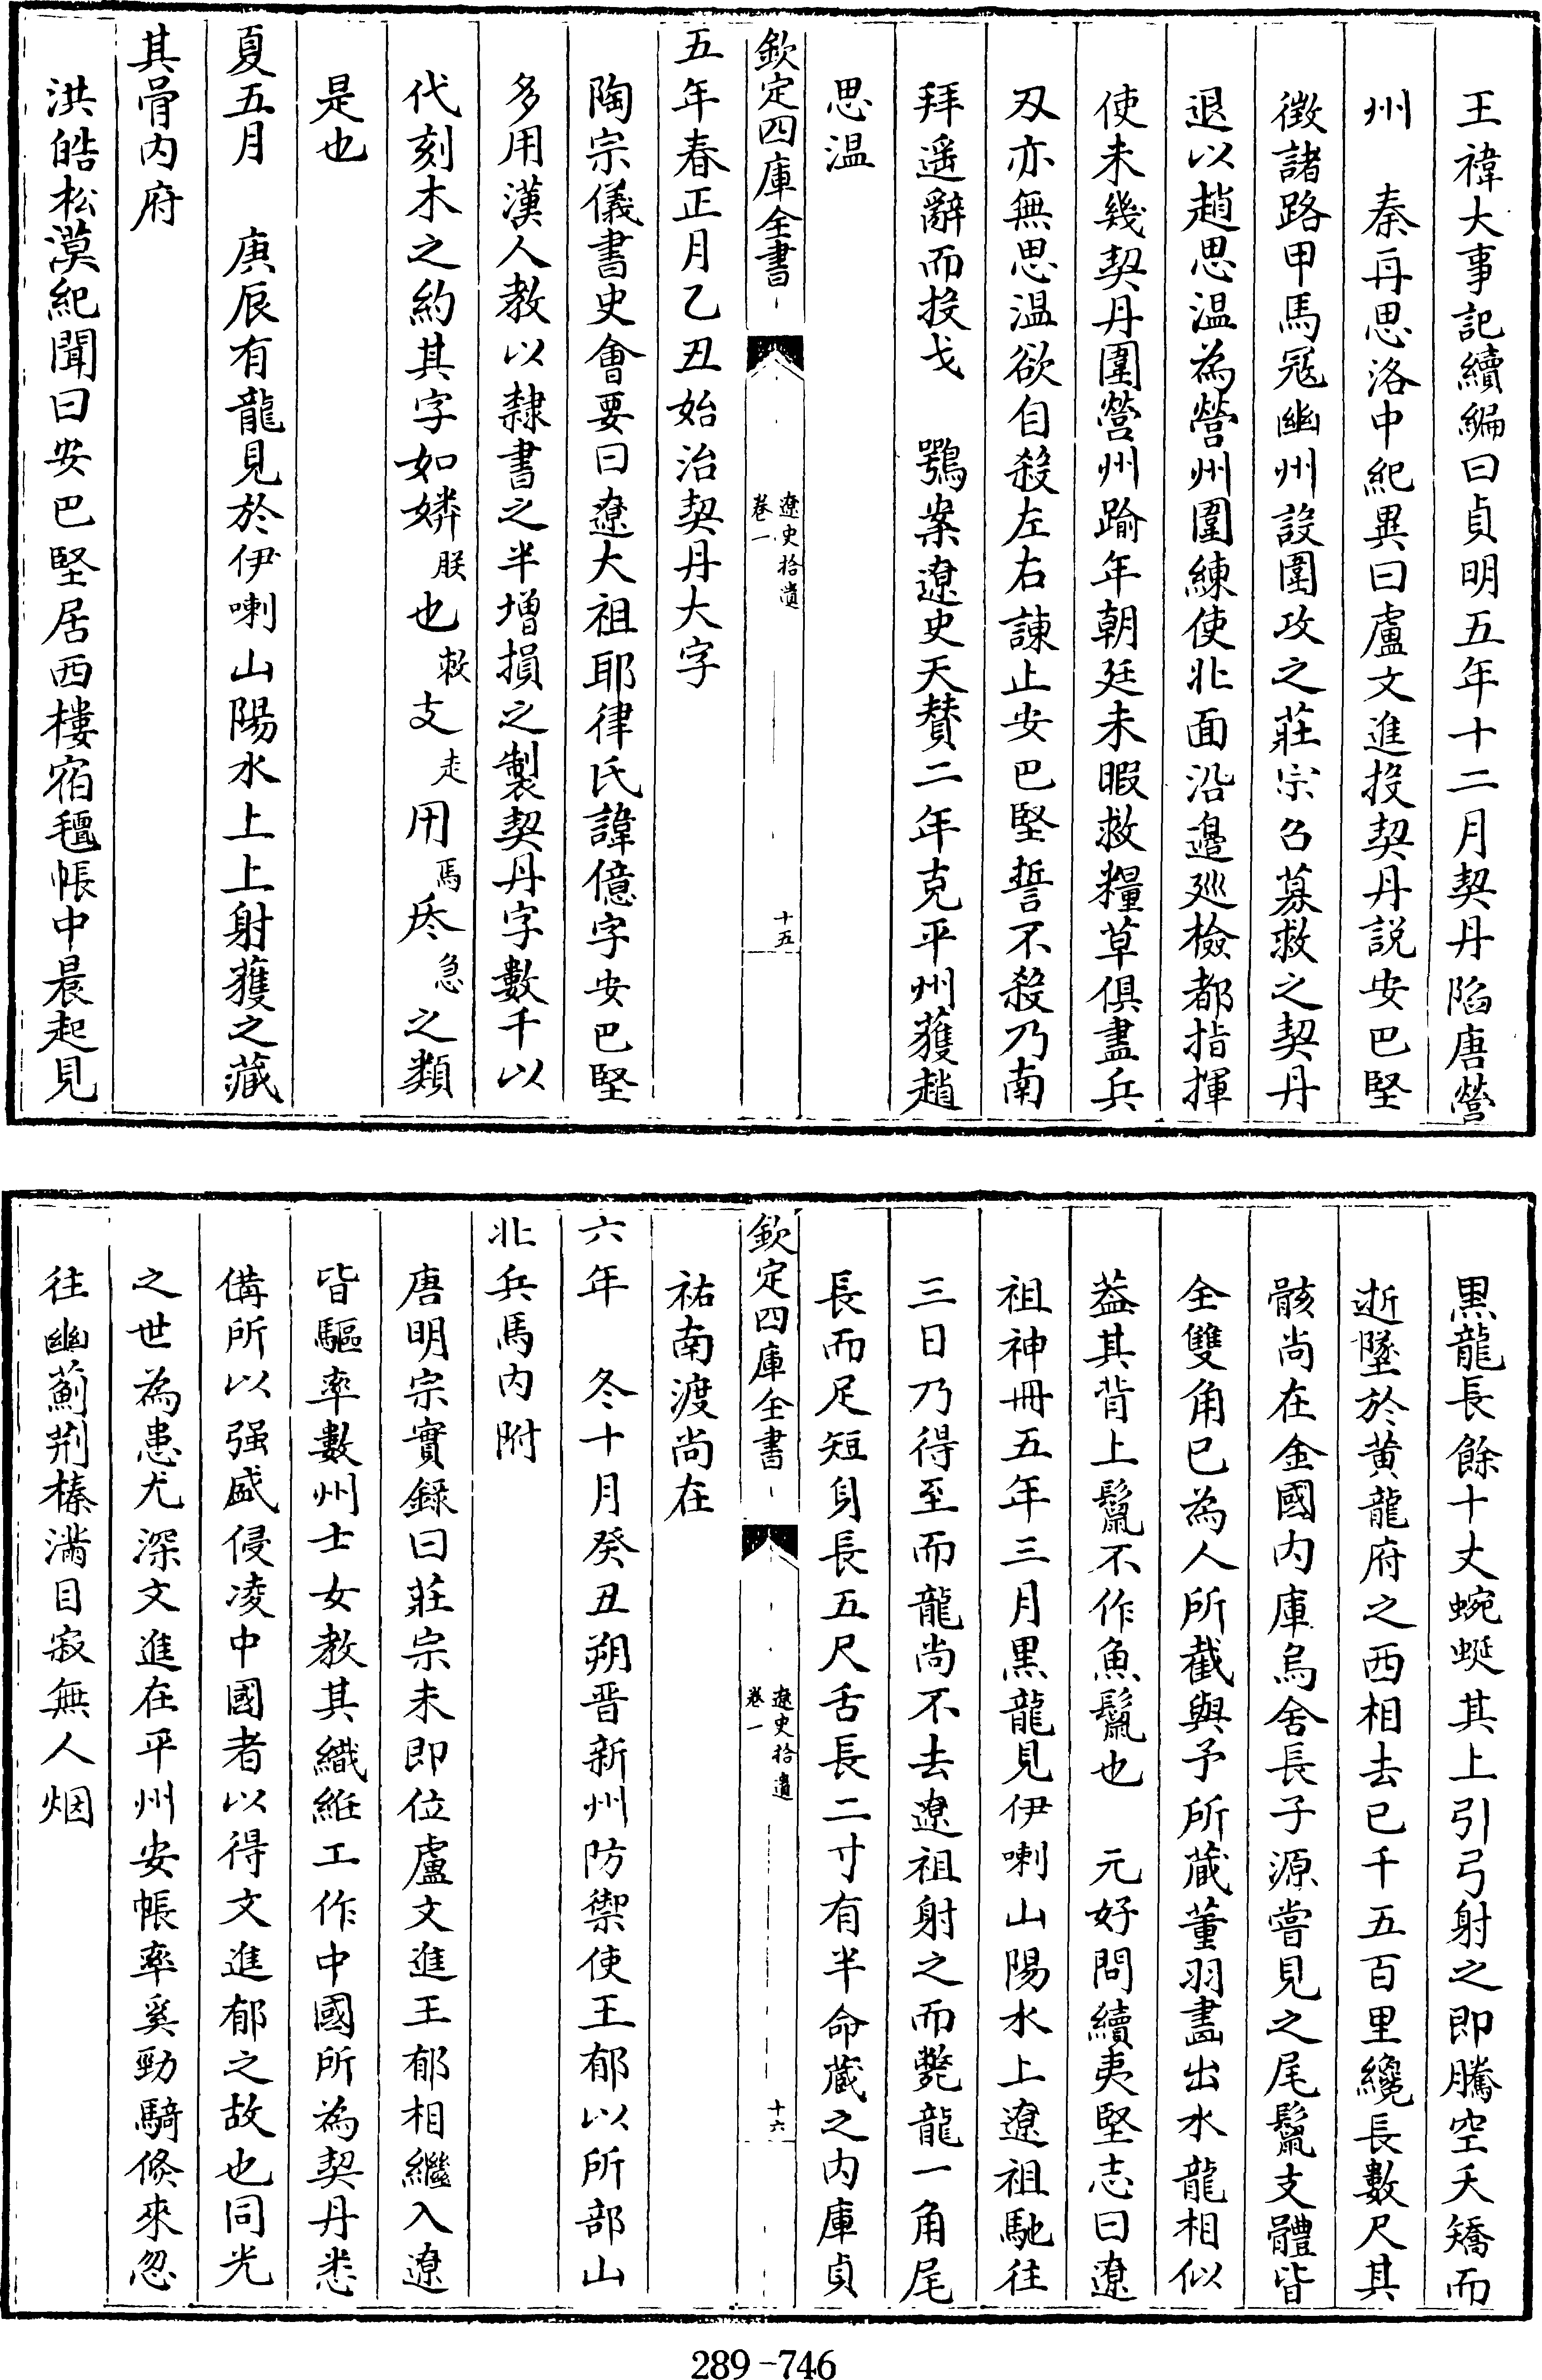 王禕大事記續編曰貞明五年十二月契丹陷唐營
州　秦再思洛中紀異曰盧文進投契丹説安巴堅
徵諸路甲馬冦幽州設圍攻之莊宗召募救之契丹
退以趙思温為營州圍練使北面沿邉廵檢都指揮
使未幾契丹圍營州踰年朝廷未暇救糧草俱盡兵
刃亦無思温欲自殺左右諫止安巴堅誓不殺乃南
拜遥辭而投戈　鶚案遼史天賛二年克平州獲趙
思温
欽定四庫全書
遼史拾遺
卷一
十五
五年春正月乙丑始治契丹大字
陶宗儀書史會要曰遼大祖耶律氏諱億字安巴堅
多用漢人教以隷書之半增損之製契丹字數千以
代刻木之約其字如㛤朕也敕支走用馬㞱急之類
是也
夏五月　庚辰有龍見於伊喇山陽水上上射獲之藏
其骨内府
洪皓松漠紀聞曰安巴堅居西樓宿氊帳中晨起見
黒龍長餘十丈蜿蜒其上引弓射之即騰空夭矯而
逝墜於黄龍府之西相去已千五百里纔長數尺其
骸尚在金國内庫烏舍長子源嘗見之尾鬛支體皆
全雙角已為人所截與予所藏董羽畵出水龍相似
葢其背上鬛不作魚鬛也　元好問續夷堅志曰遼
祖神冊五年三月黒龍見伊喇山陽水上遼祖馳往
三日乃得至而龍尚不去遼祖射之而斃龍一角尾
長而足短身長五尺舌長二寸有半命藏之内庫貞
欽定四庫全書
遼史拾遺
卷一
十六
祐南渡尚在
六年　冬十月癸丑朔晋新州防禦使王郁以所部山
北兵馬内附
唐明宗實録曰莊宗未即位盧文進王郁相繼入遼
皆驅率數州士女教其織維工作中國所為契丹悉
備所以强盛侵凌中國者以得文進郁之故也同光
之世為患尤深文進在平州安帳率奚勁騎倐來忽
往幽薊荆榛滿目寂無人烟
289-746